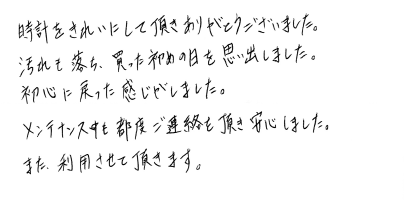 時計をきれいにして頂きありがとうございました。
汚れも落ち、買った初めの日を思い出しました。
初心に戻った感じがしました。
メンテナンス中も都度ご連絡を頂き安心しました。
また、利用させて頂きます。